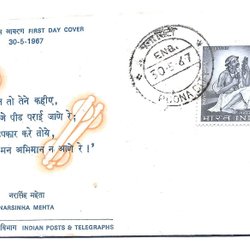 आवरण FIRST DAY COVER
30-5-1967
न तो तेने कहीए,
जे पीड पराई जाणे रे;
पकार करे तोये,
मन अभिमान न आणे रे।'
नरसिंह महेता
NARSINHA MEHTA
विभाग INDIAN POSTS & TELEGRAPHS
ENB.
30-5-67
POONA
भारत INDIA